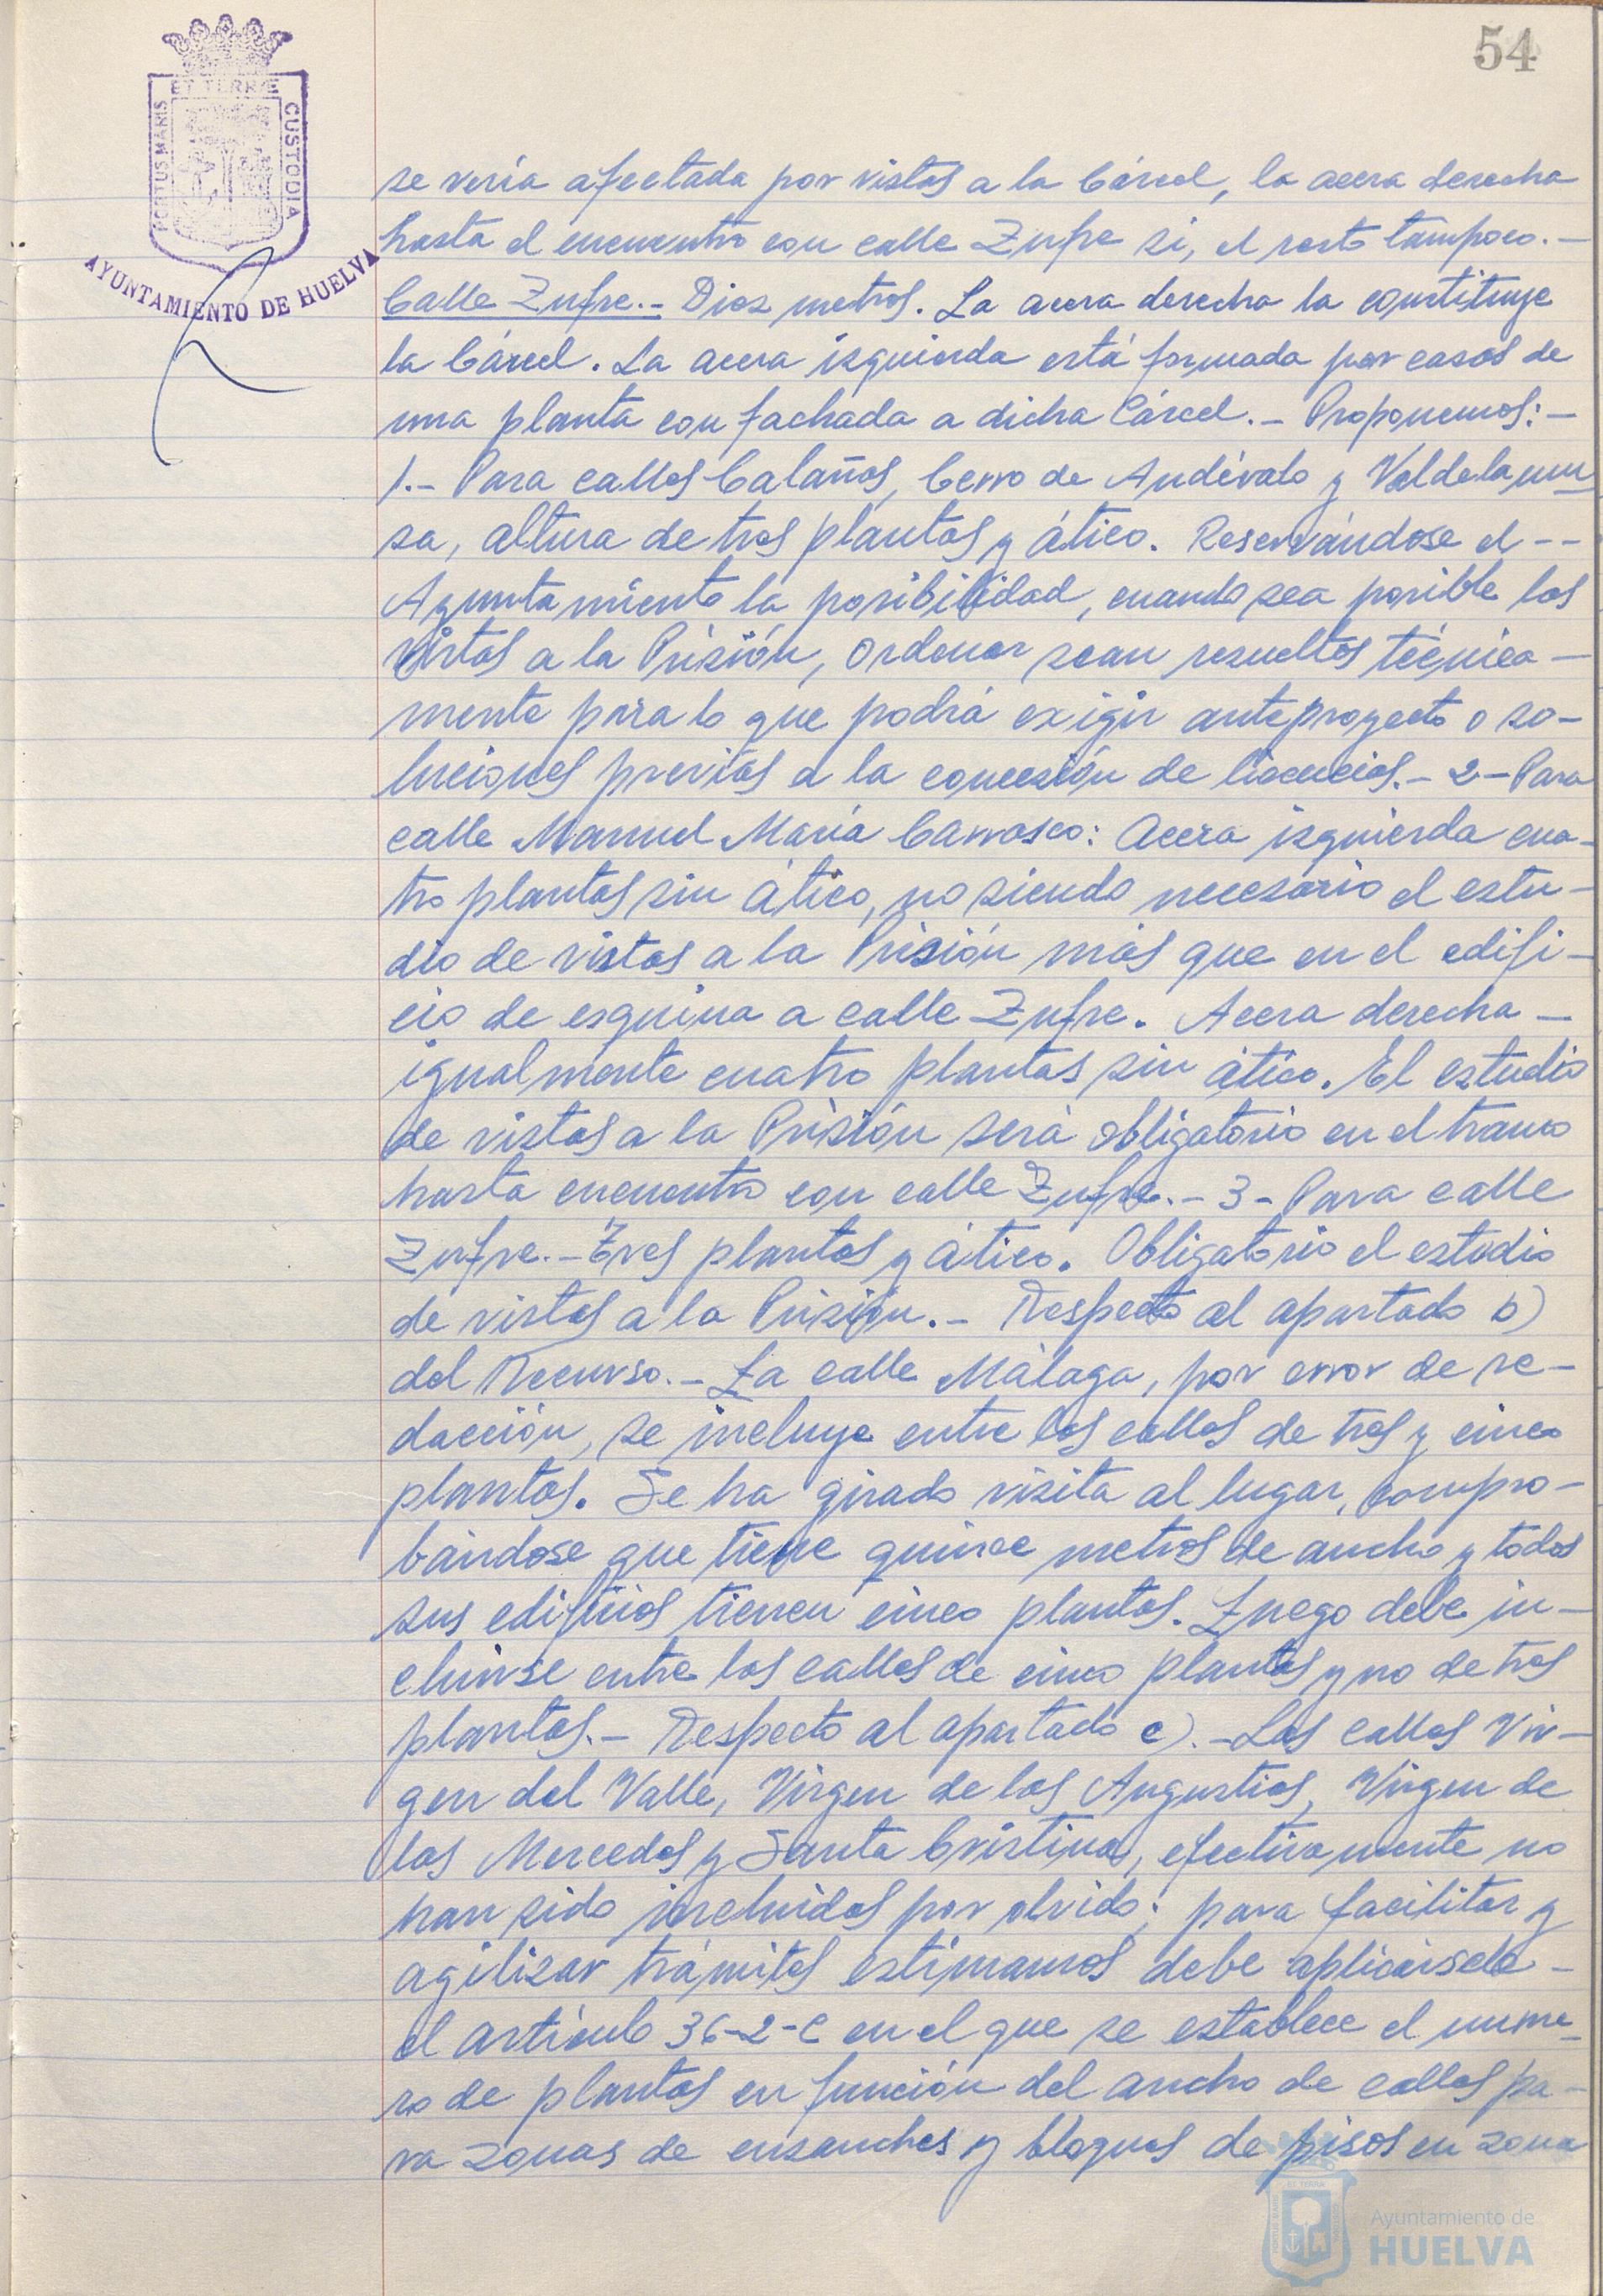 54
PORTUS MARIS ET TERRÆ CUSTODIA
AYUNTAMIENTO DE HUELVA
se vería afectada por vistas a la Cárcel, la acera derecha
hasta el encuentro con calle Zufre si, el resto tampoco.-
Calle Zufre.- Diez metros. La acera derecha la constituye
la Cárcel. La acera izquierda está formada por casas de
una planta con fachada a dicha Cárcel.- Proponemos:-
1.- Para calles Calañas, Cerro de Andévalo y Valdelamu-
sa, altura de tres plantas y ático. Reservándose el --
Ayuntamiento la posibilidad, cuando sea posible las
vistas a la Prisión, ordenar sean resueltos técnica-
mente para lo que podrá exigir anteproyecto o so-
luciones previas a la concesión de licencias.- 2- Para
calle Manuel María Carrasco: Acera izquierda cua-
tro plantas sin ático, no siendo necesario el estu-
dio de vistas a la Prisión más que en el edifi-
cio de esquina a calle Zufre. Acera derecha -
igualmente cuatro plantas sin ático. El estudio
de vistas a la Prisión será obligatorio en el tramo
hasta encuentro con calle Zufre.- 3- Para calle
Zufre.- Tres plantas y ático. Obligatorio el estudio
de vistas a la Prisión.- Respecto al apartado b)
del Recurso.- La calle Málaga, por error de re-
dacción, se incluye entre las calles de tres y cinco
plantas. Se ha girado visita al lugar, compro-
bándose que tiene quince metros de ancho y todos
sus edificios tienen cinco plantas. Luego debe in-
cluirse entre las calles de cinco plantas y no de tres
plantas.- Respecto al apartado c).- Las calles Vir-
gen del Valle, Virgen de las Angustias, Virgen de
las Mercedes y Santa Cristina, efectivamente no
han sido incluidas por olvido; para facilitar y
agilizar trámites estimamos debe aplicársele -
el artículo 36-2-C en el que se establece el núme-
ro de plantas en función del ancho de calles pa-
ra zonas de ensanches y bloques de pisos en zona
Ayuntamiento de
HUELVA